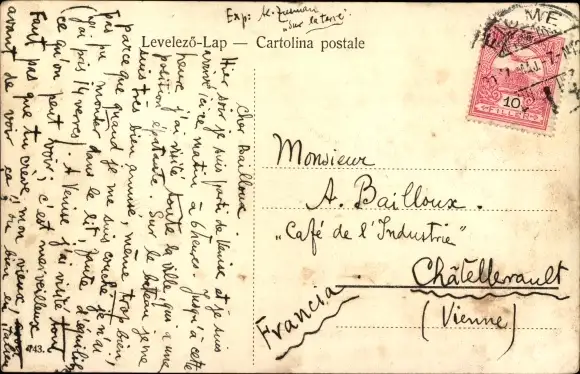 Exp:
"Sur la terre"
Levelező-Lap — Cartolina postale
FIUME
10
FILLÉR
Cher Bailloux
Hier soir je suis parti de Venise et je suis
arrivé ici ce matin à 6 heures. Jusqu'à cette
heure j'ai visité toute la ville, qui a une
position épatante. Sur le bateau je me
suis très bien amusé, même trop bien,
parce que quand je me suis couché je n'ai
pas pu monter dans le lit, faute d'équilibre
(j'ai pris 14 verres). A Venise j'ai visité tout
ce qu'on peut voir; c'est merveilleux
Faut pas que tu crèves mon vieux,
avant de voir ça, ou bien en Italie
Monsieur
A. Bailloux.
„Café de l'Industrie"
Châtellerault
(Vienne)
Francia